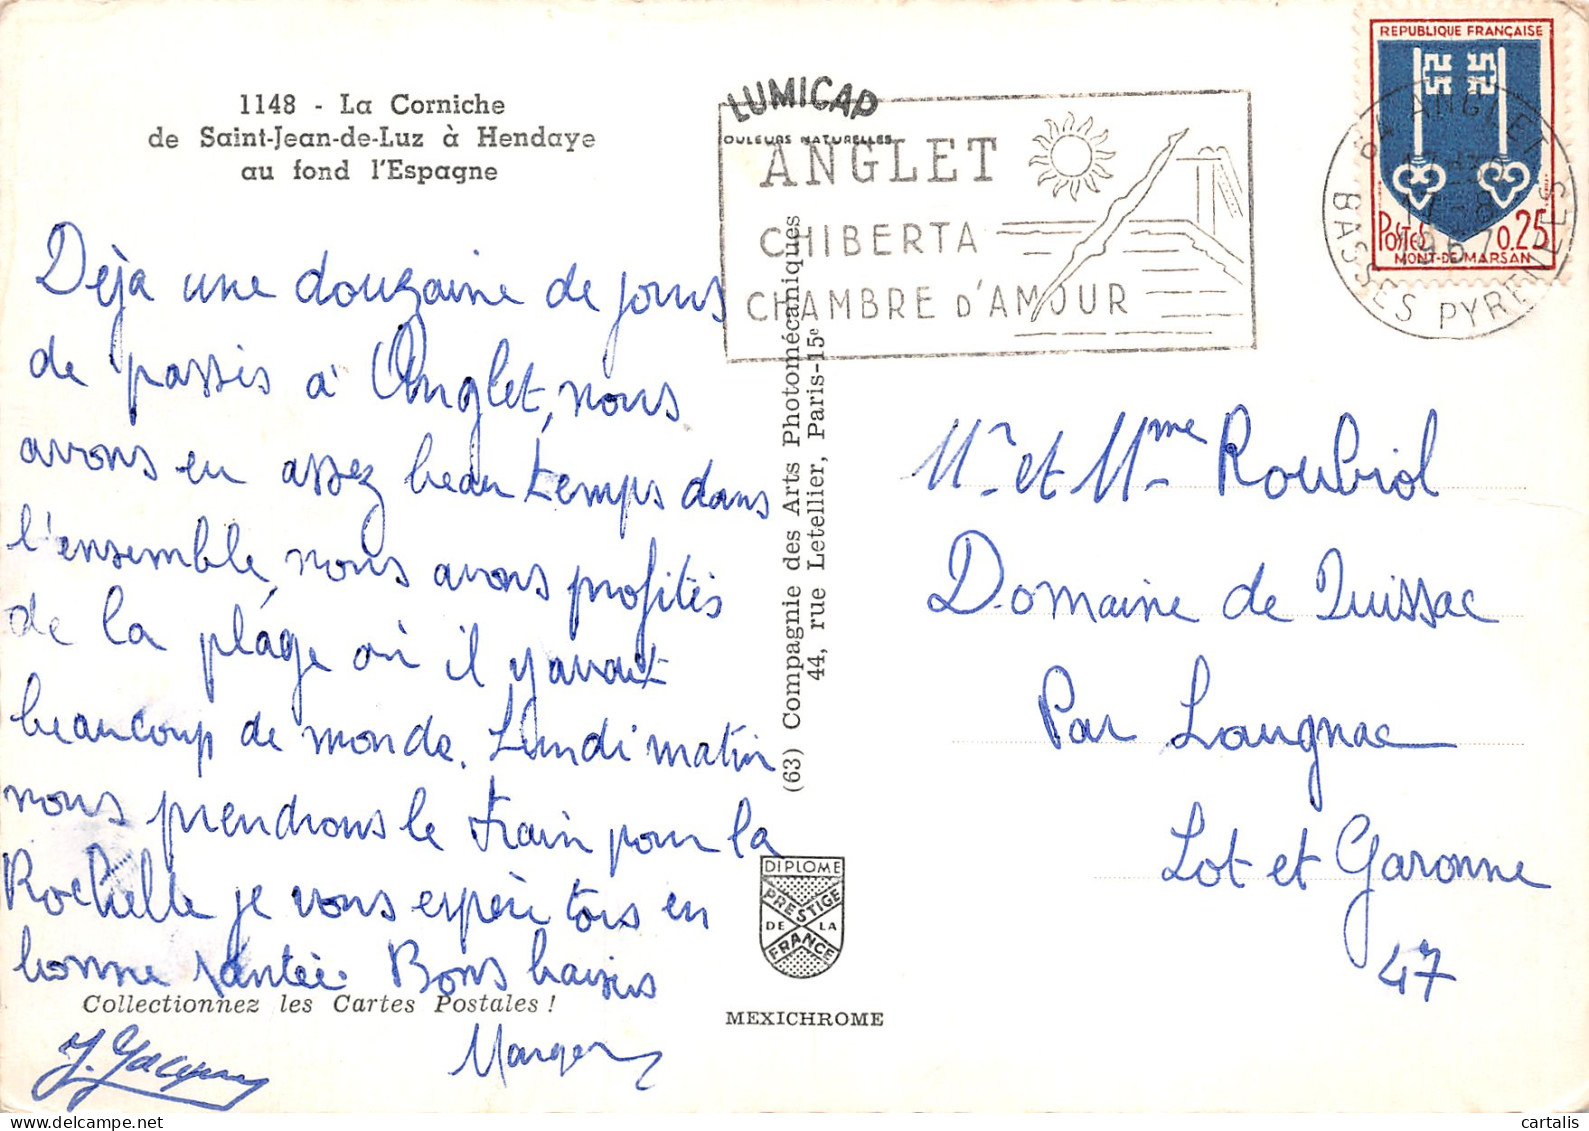 1148 - La Corniche
de Saint-Jean-de-Luz à Hendaye
au fond l'Espagne
Déja une douzaine de jours
de passés à Anglet, nous
avons eu assez beau temps dans
l'ensemble, nous avons profités
de la plage où il y avait
beaucoup de monde. Lundi matin
nous prendrons le train pour la
Rochelle je vous espère tous en
bonne santée. Bons baisers
Collectionnez les Cartes Postales !
LUMICAP
OULEURS NATURELLES
ANGLET
CHIBERTA
CHAMBRE D'AMOUR
REPUBLIQUE FRANÇAISE
POSTES 0,25
MONT-DE-MARSAN
64 ANGLET
1967
BASSES PYRENEES
(63) Compagnie des Arts Photomécaniques
44, rue Letellier, Paris-15e
Mr et Mme Roubiol
Domaine de Quissac
Par Laugnac
Lot et Garonne
47
DIPLOME
PRESTIGE
DE LA
FRANCE
MEXICHROME
cartalis